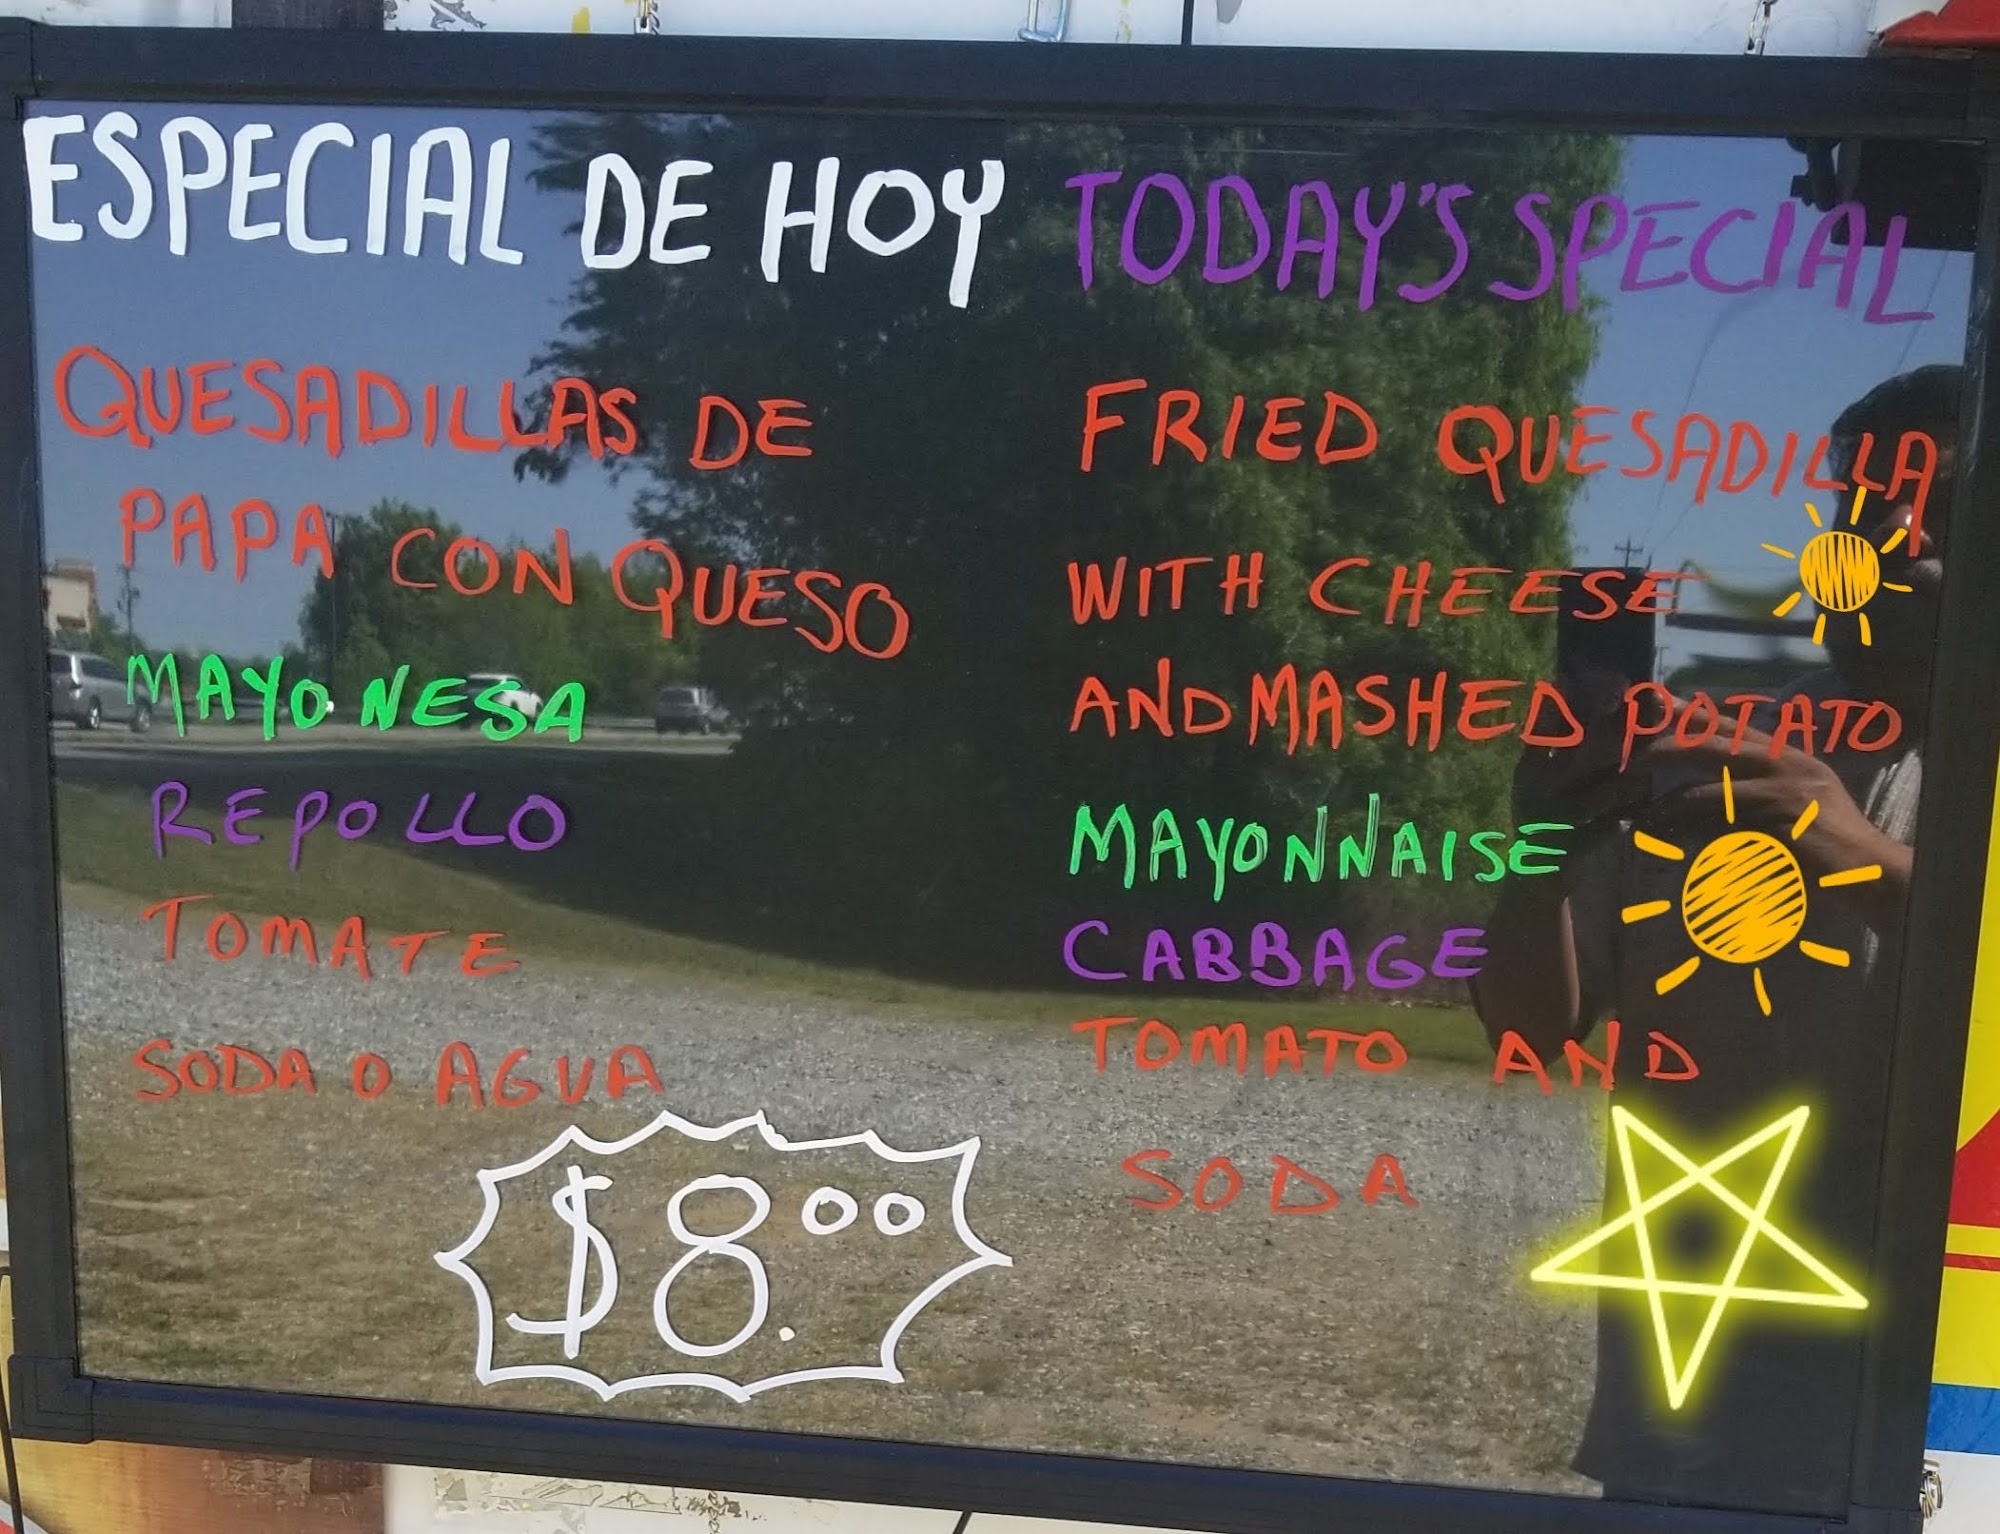 ESPECIAL DE HOY
QUESADILLAS DE
PAPA CON QUESO
MAYONESA
REPOLLO
TOMATE
SODA O AGUA
$8.00
TODAY'S SPECIAL
FRIED QUESADILLA
WITH CHEESE
AND MASHED POTATO
MAYONNAISE
CABBAGE
TOMATO AND
SODA